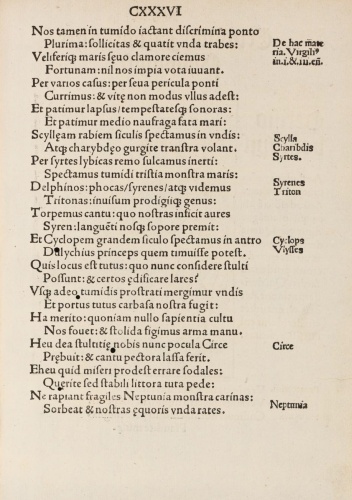 CXXXVI
Nos tamen in tumido iactant discrimina ponto
Plurima: sollicitas & quatit vnda trabes:
De hac mate
ria. Virgiliꝰ
in .i. & .iii. eñ.
Veliferiqꝫ maris sęuo clamore ciemus
Fortunam: nil nos impia vota iuuant.
Per varios casus: per seua pericula ponti
Currimus: & vitę non modus vllus adest:
Et patimur lapsus/ tempestatesqꝫ sonoras:
Et patimur medio naufraga fata mari:
Scyllęam rabiem siculis spectamus in vndis:
Scylla
Atqꝫ charybdęo gurgite transtra volant.
Charibdis
Per syrtes lybicas remo sulcamus inerti:
Syrtes.
Spectamus tumidi tristia monstra maris:
Delphinos: phocas/ syrenes/ atqꝫ videmus
Syrenes
Tritonas: inuisum prodigiiqꝫ genus:
Triton
Torpemus cantu: quo nostras inficit aures
Syren: languẽti nosqꝫ sopore premit:
Et Cyclopem grandem siculo spectamus in antro
Cyclops
Dulychius princeps quem timuisse potest.
Vlysses
Quis locus est tutus: quo nunc considere stulti
Possunt: & certos ędificare lares?
Vsqꝫ adeo tumidis prostrati mergimur vndis
Et portus tutus carbasa nostra fugit:
Ha merito: quoniam nullo sapientia cultu
Nos fouet: & stolida figimus arma manu.
Heu dea stultitię nobis nunc pocula Circe
Circe
Prębuit: & cantu pectora lassa ferit.
Eheu quid miseri prodest errare sodales:
Querite sed stabili littora tuta pede:
Ne rapiant fragiles Neptunia monstra carinas:
Neptunia
Sorbeat & nostras ęquoris vnda rates.